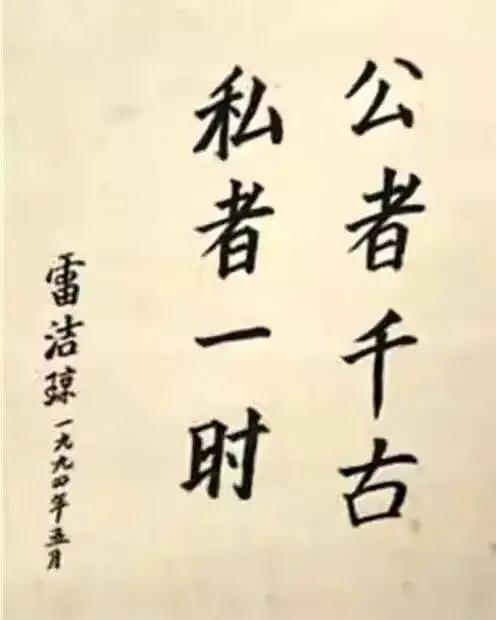 公者千古
私者一时
雷洁琼一九九四年五月